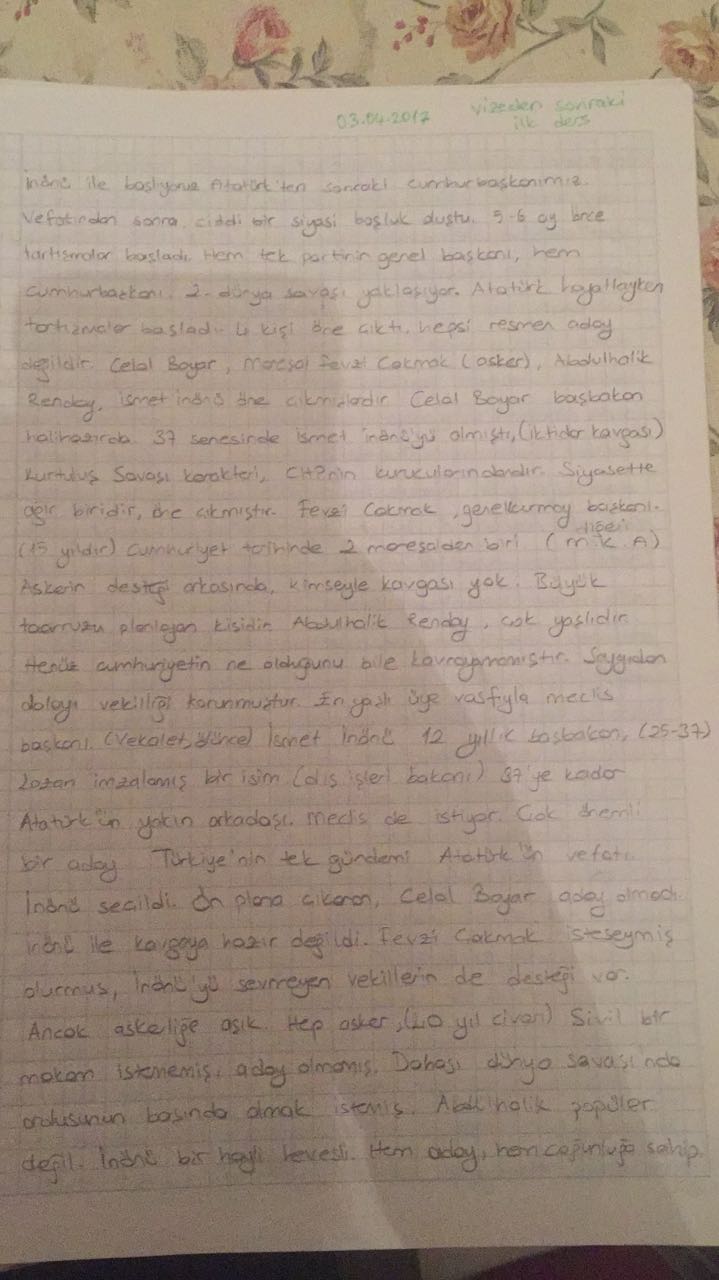 03.04.2017 vizeden sonraki
ilk ders
İnönü ile başlıyoruz Atatürk'ten sonraki cumhurbaşkanımız.
Vefatından sonra ciddi bir siyasi boşluk oluştu. 5-6 ay önce
tartışmalar başladı. Hem tek partinin genel başkanı, hem
cumhurbaşkanı. 2. dünya savaşı yaklaşıyor. Atatürk hayattayken
tartışmalar başladı. 4 kişi öne çıktı, hepsi resmen aday
değildir. Celal Bayar, Mareşal Fevzi Çakmak (asker), Abdulhalik
Renday, ismet inönü öne çıkmışlardır Celal Bayar başbakan
halihazırda. 37 senesinde ismet inönü'yü almıştı, (iktidar kavgası)
Kurtuluş Savaşı karakteri, CHP'nin kurucularındandır. Siyasette
ağır biridir, öne çıkmıştır. Fevzi Çakmak, genelkurmay başkanı.
(15 yıldır) Cumhuriyet tarihinde 2 mareşalden biri (diğeri m.k.A)
Askerin desteği arkasında, kimseyle kavgası yok. Büyük
taarruzu planlayan kişidir. Abdulhalik Renday, çok yaşlıdır.
Henüz cumhuriyetin ne olduğunu bile kavrayamamıştır. Saygıdan
dolayı vekilliği korunmuştur. En yaşlı üye vasfıyla meclis
başkanı. (Vekalet, önce) İsmet İnönü 12 yıllık başbakan, (25-37)
Lozan imzalamış bir isim (dış işleri bakanı) 37'ye kadar
Atatürk'ün yakın arkadaşı. Meclis de istiyor. Çok önemli
bir aday Türkiye'nin tek gündemi Atatürk'ün vefatı.
İnönü seçildi. Ön plana çıkaran, Celal Bayar aday olmadı.
İnönü ile kavgaya hazır değildi. Fevzi Çakmak isteseymiş
olurmuş, İnönü'yü sevmeyen vekillerin de desteği var.
Ancak askerliğe aşık. Hep asker, (40 yıl civarı) Sivil bir
makam istememiş, aday olmamış. Dahası dünya savaşında
ordusunun başında olmak istemiş. Abdulhalik popüler
değil. İnönü bir hayli hevesli. Hem aday, hem çoğunluğa sahip.